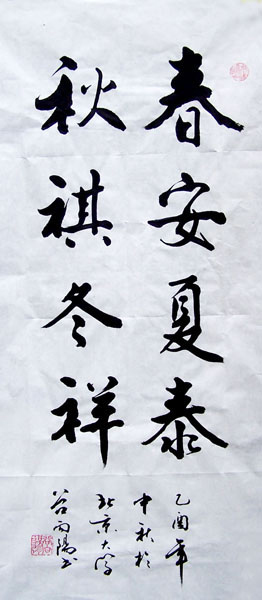 春安夏泰
秋祺冬祥
乙酉年
中秋於
北京大学
谷向阳书